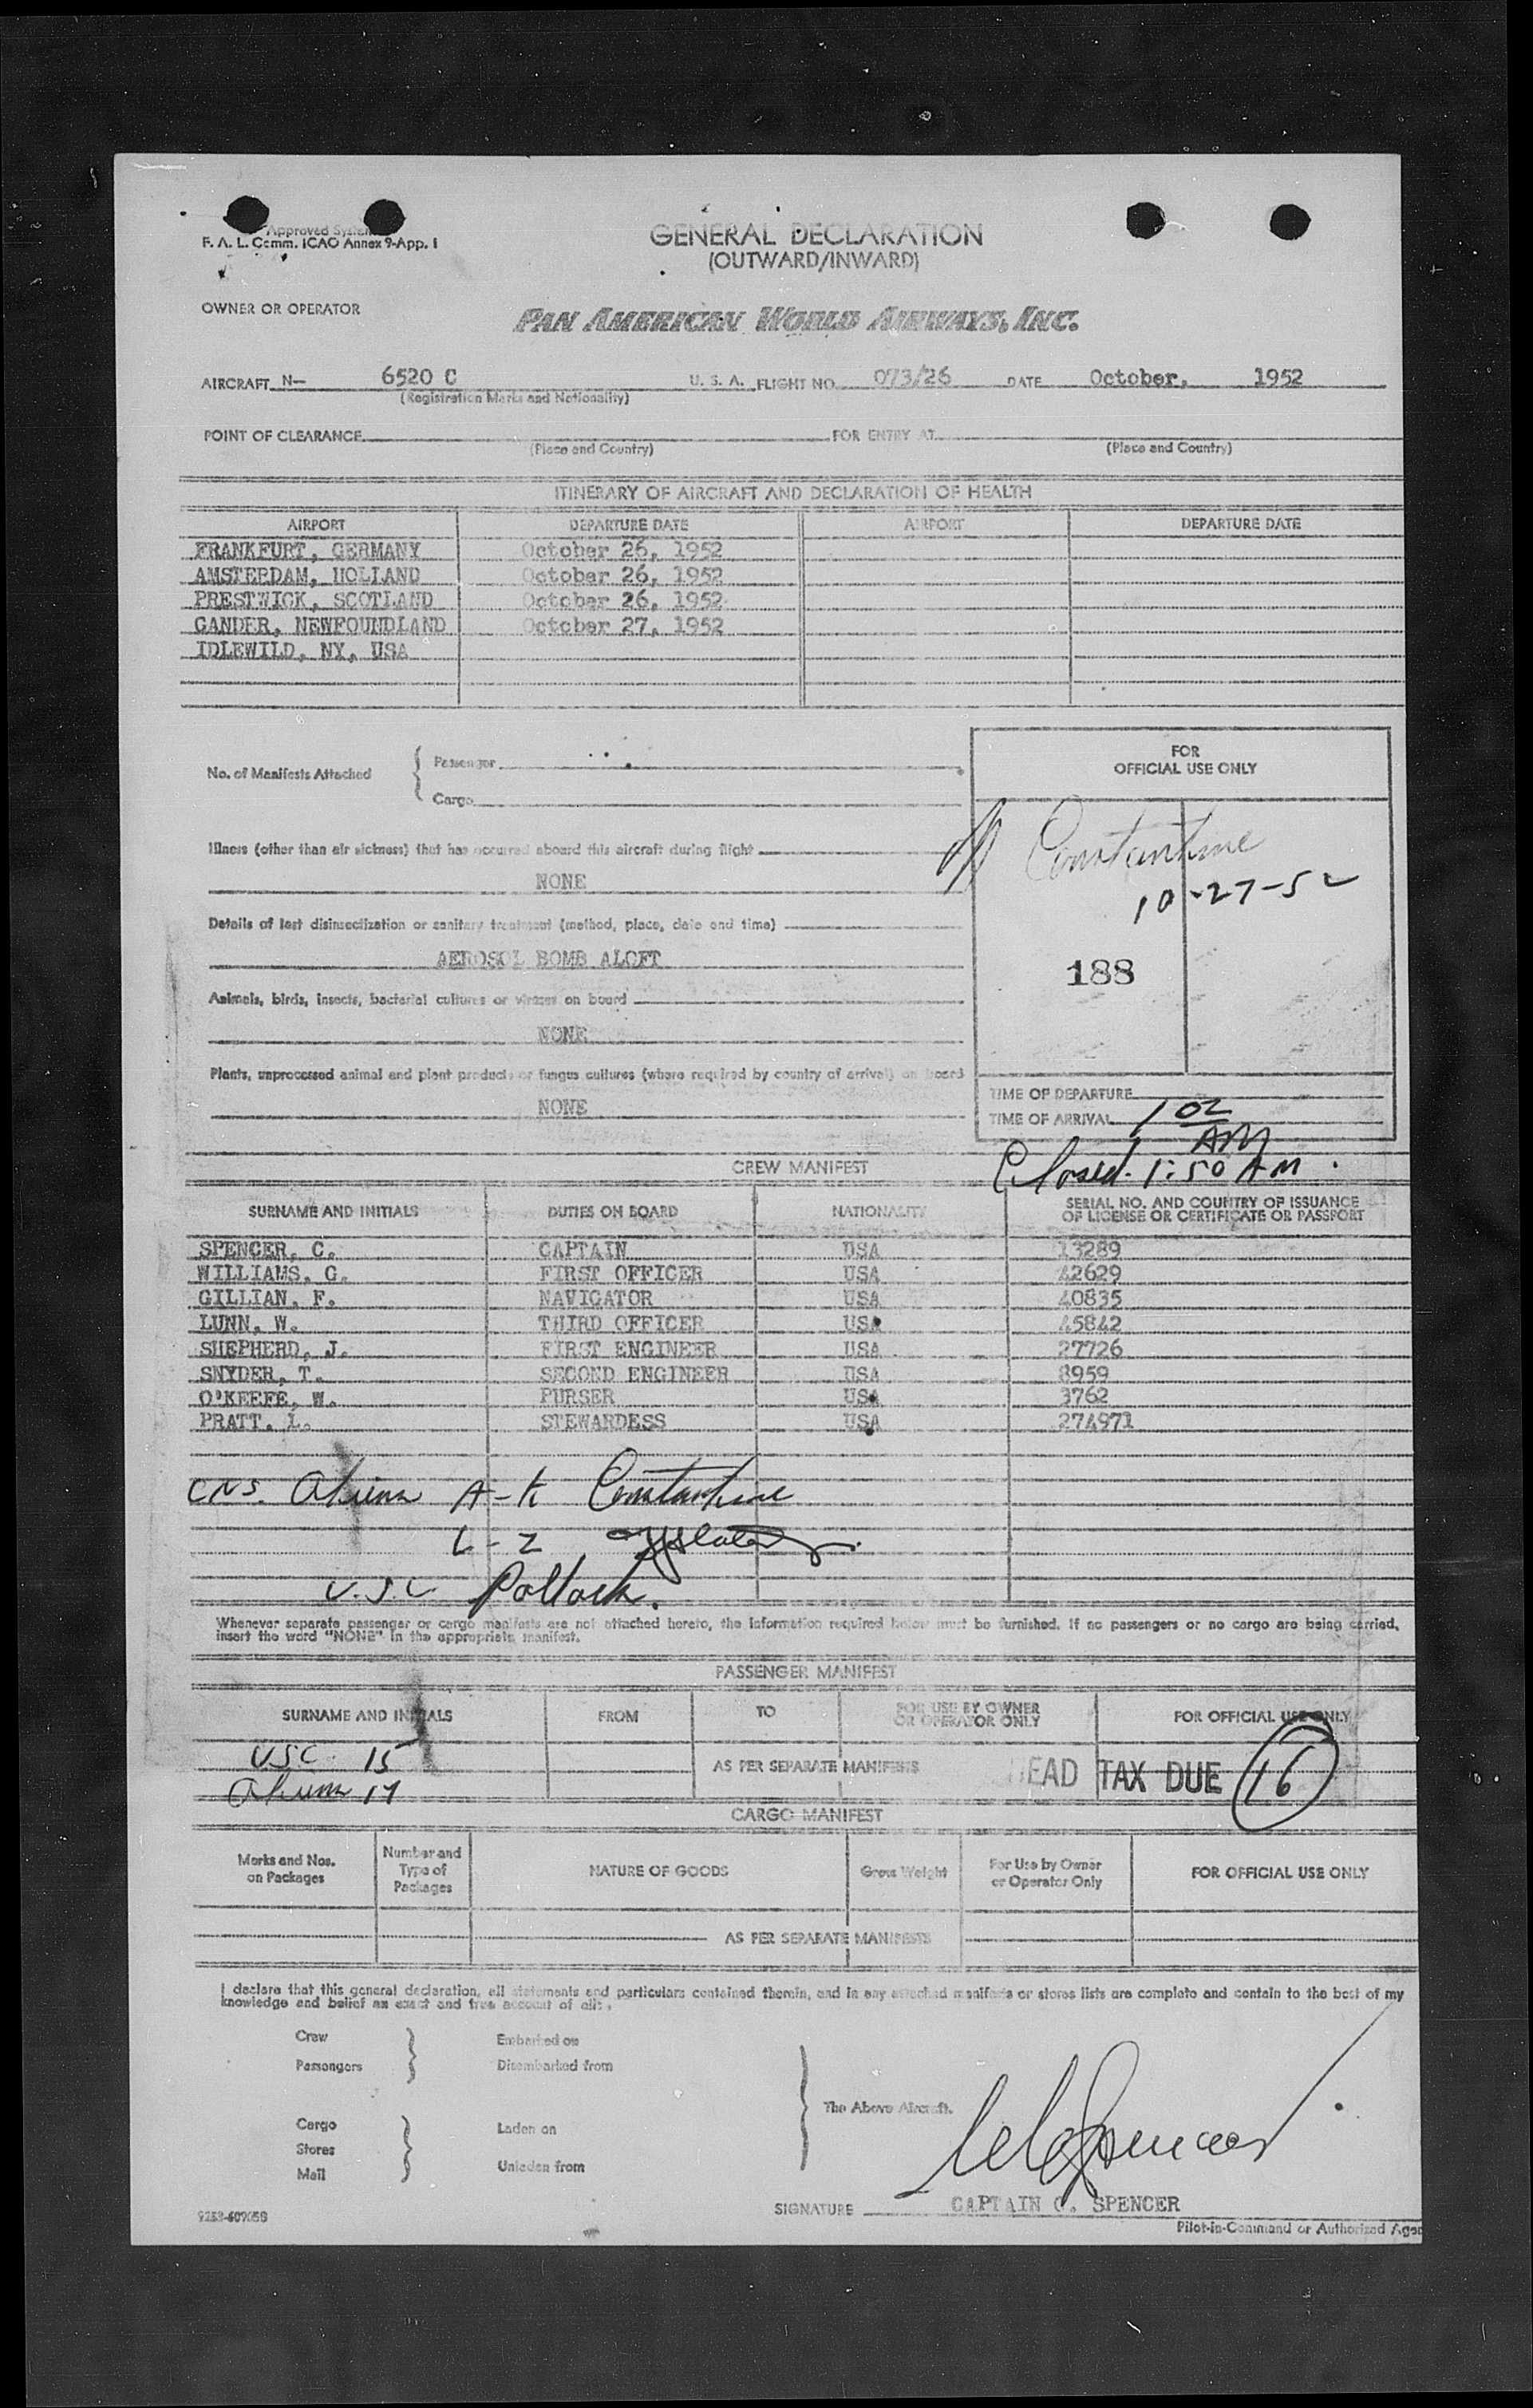 Approved System
F. A. L. Comm. ICAO Annex 9-App. I
GENERAL DECLARATION
(OUTWARD/INWARD)
OWNER OR OPERATOR
PAN AMERICAN WORLD AIRWAYS, INC.
AIRCRAFT N— 6520 C U. S. A. FLIGHT NO. 073/26 DATE October, 1952
(Registration Marks and Nationality)
POINT OF CLEARANCE FOR ENTRY AT
(Place and Country) (Place and Country)
ITINERARY OF AIRCRAFT AND DECLARATION OF HEALTH
AIRPORT DEPARTURE DATE AIRPORT DEPARTURE DATE
FRANKFURT, GERMANY October 26, 1952
AMSTERDAM, HOLLAND October 26, 1952
PRESTWICK, SCOTLAND October 26, 1952
GANDER, NEWFOUNDLAND October 27, 1952
IDLEWILD, NY, USA
No. of Manifests Attached { Passenger
Cargo
FOR
OFFICIAL USE ONLY
Constantine
10-27-52
188
Illness (other than air sickness) that has occurred aboard this aircraft during flight
NONE
Details of last disinsectization or sanitary treatment (method, place, date and time)
AEROSOL BOMB ALOFT
Animals, birds, insects, bacterial cultures or viruses on board
NONE
Plants, unprocessed animal and plant products or fungus cultures (where required by country of arrival) on board
NONE
TIME OF DEPARTURE
TIME OF ARRIVAL 1 02
AM
Closed 1:50 AM.
CREW MANIFEST
SURNAME AND INITIALS DUTIES ON BOARD NATIONALITY SERIAL NO. AND COUNTRY OF ISSUANCE
OF LICENSE OR CERTIFICATE OR PASSPORT
SPENCER, C. CAPTAIN USA 13289
WILLIAMS, G. FIRST OFFICER USA 42629
GILLIAN, F. NAVIGATOR USA 40835
LUNN, W. THIRD OFFICER USA 45842
SHEPHERD, J. FIRST ENGINEER USA 27726
SNYDER, T. SECOND ENGINEER USA 8959
O'KEEFE, W. PURSER USA 3762
PRATT, L. STEWARDESS USA 274971
CNS. Aliens A-K Constantine
L-Z
U.S.C. Pollack.
Whenever separate passenger or cargo manifests are not attached hereto, the information required below must be furnished. If no passengers or no cargo are being carried,
insert the word "NONE" in the appropriate manifest.
PASSENGER MANIFEST
SURNAME AND INITIALS FROM TO FOR USE BY OWNER
OR OPERATOR ONLY FOR OFFICIAL USE ONLY
USC. 15
AS PER SEPARATE MANIFESTS HEAD TAX DUE 16
Aliens 17
CARGO MANIFEST
Marks and Nos.
on Packages Number and
Type of
Packages NATURE OF GOODS Gross Weight For Use by Owner
or Operator Only FOR OFFICIAL USE ONLY
AS PER SEPARATE MANIFESTS
I declare that this general declaration, all statements and particulars contained therein, and in any attached manifests or stores lists are complete and contain to the best of my
knowledge and belief an exact and true account of all:
Crew Embarked on
Passengers Disembarked from
The Above Aircraft.
Cargo Laden on
Stores
Mail Unladen from
SIGNATURE CAPTAIN C. SPENCER
Pilot-in-Command or Authorized Agen